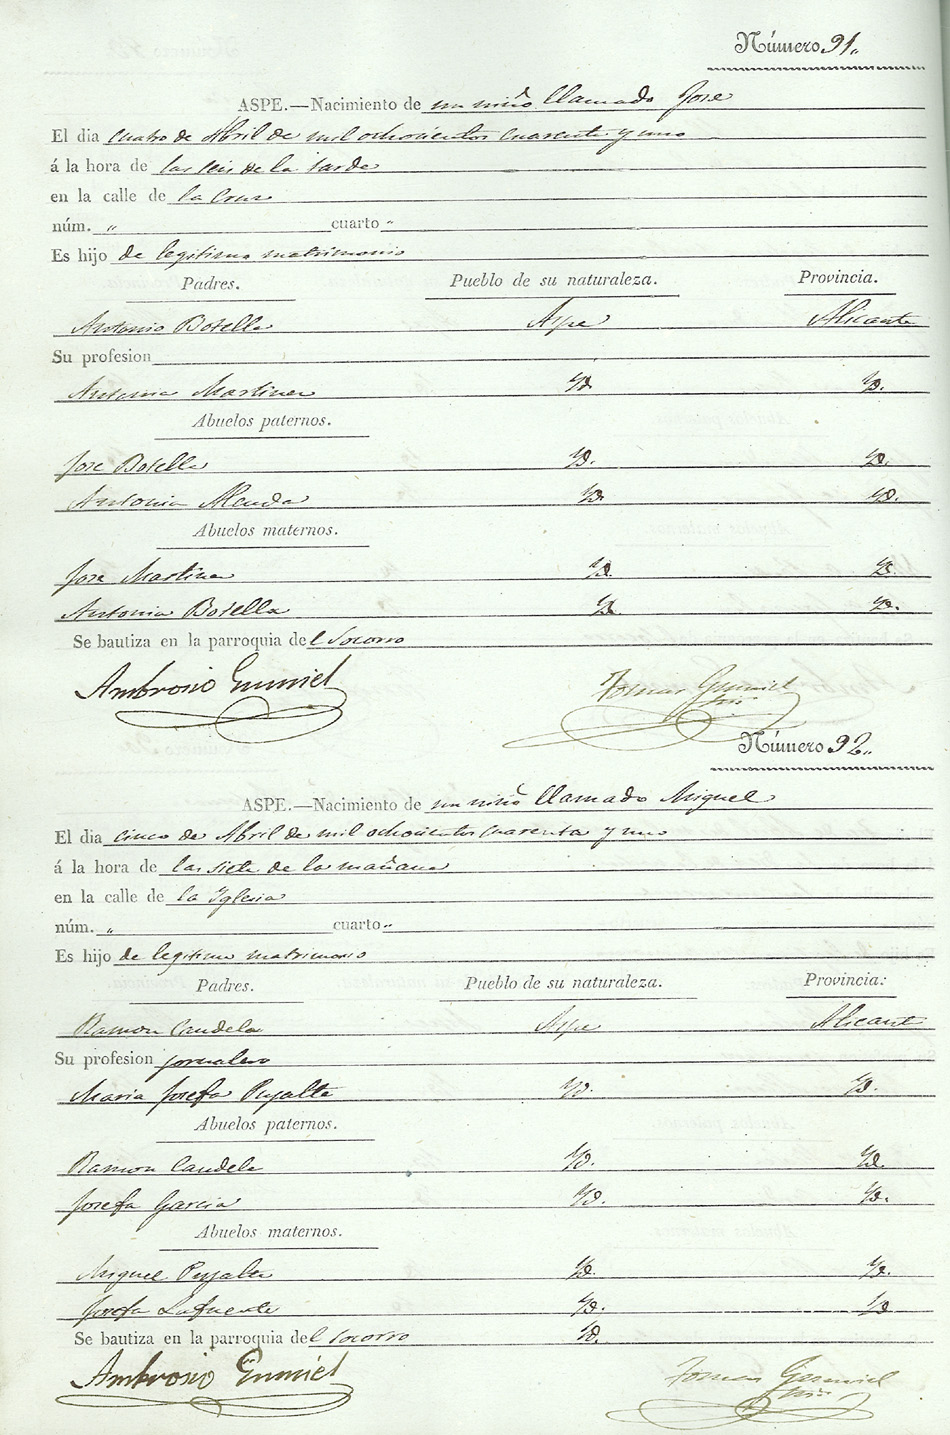 Número 91.
ASPE.—Nacimiento de un niño llamado Jose
El dia cuatro de Abril de mil ochocientos cuarenta y uno
á la hora de las seis de la tarde
en la calle de la Cruz
núm. „ cuarto „
Es hijo de legitimo matrimonio
Padres. Pueblo de su naturaleza. Provincia.
Antonio Botella Aspe Alicante
Su profesion
Antonia Martinez Yd. Yd.
Abuelos paternos.
Jose Botella Yd. Yd.
Antonia Yd. Yd.
Abuelos maternos.
Jose Martinez Yd. Yd.
Antonia Botella Yd. Yd.
Se bautiza en la parroquia del Socorro
Ambrosio Gumiel Tomas Gumiel
Número 92.
ASPE.—Nacimiento de un niño llamado Miguel
El dia cinco de Abril de mil ochocientos cuarenta y uno
á la hora de las siete de la mañana
en la calle de la Yglesia
núm. „ cuarto „
Es hijo de legitimo matrimonio
Padres. Pueblo de su naturaleza. Provincia:
Ramon Candela Aspe Alicante
Su profesion jornalero
Maria Josefa Pujalte Yd. Yd.
Abuelos paternos.
Ramon Candela Yd. Yd.
Josefa Garcia Yd. Yd.
Abuelos maternos.
Miguel Pujalte Yd. Yd.
Josefa Lafuente Yd. Yd.
Se bautiza en la parroquia del Socorro Yd.
Ambrosio Gumiel Tomas Gumiel